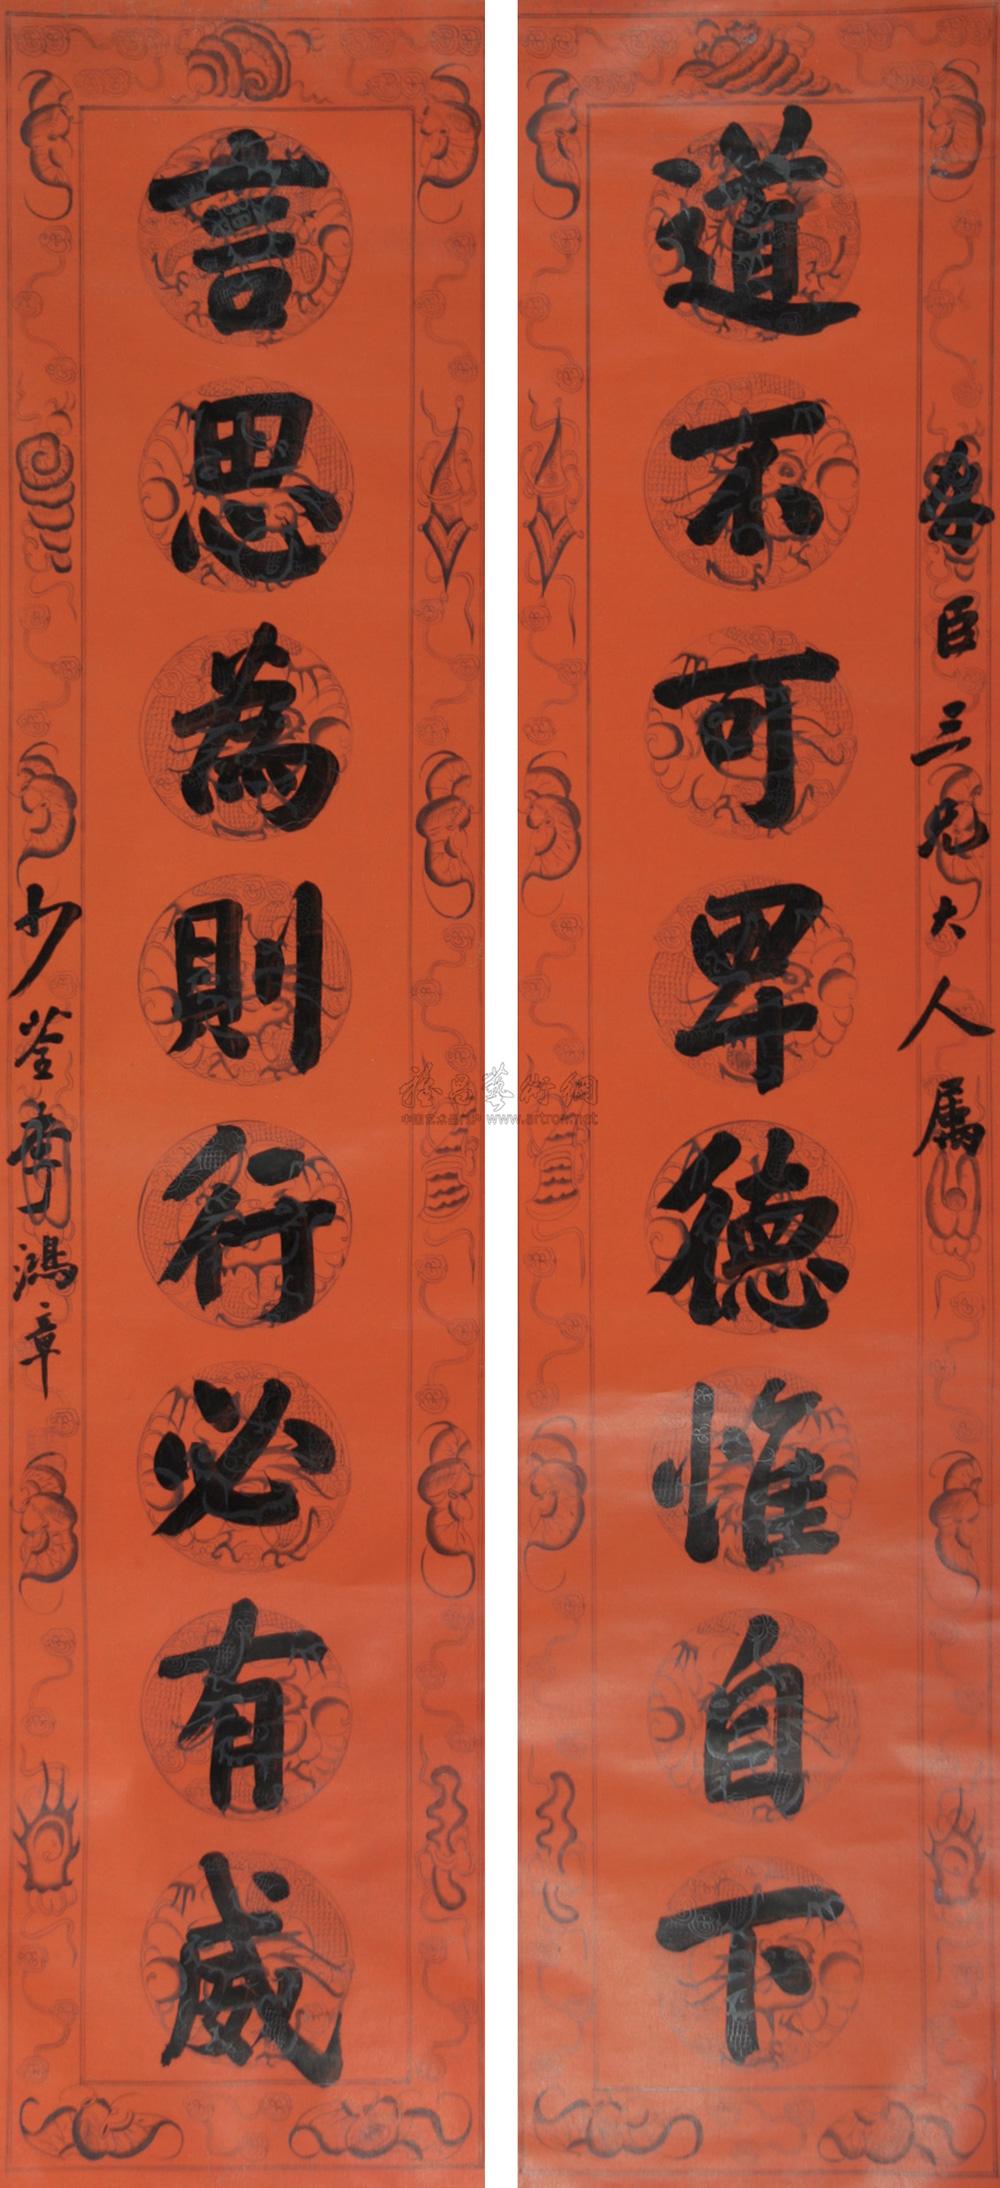 臣三兄大人屬
道不可卑德惟自下
言思為則行必有威
少荃李鴻章
雅昌藝術網
www.artron.net